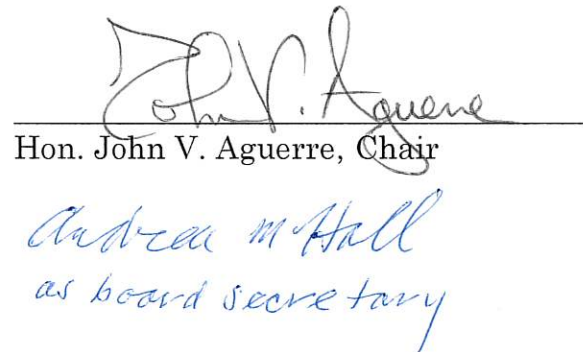 John V. Aguerre
Hon. John V. Aguerre, Chair
Andrea M Hall
as board secretary